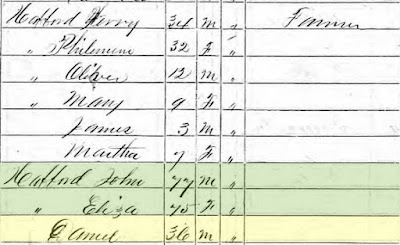 Hafford Perry 34 M " Farmer
" Philemene 32 F "
" Oliver 12 M "
" Mary 9 F "
James 3 M "
Martha 7 F "
Hafford John 77 M "
" Eliza 75 F "
Daniel 36 M "